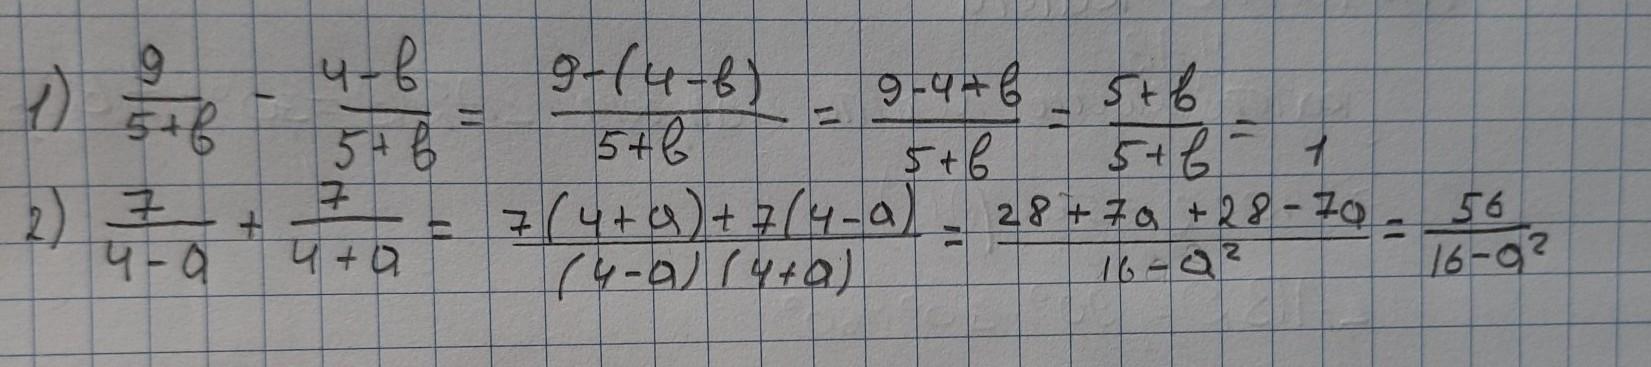 1) 9/(5+b) - (4-b)/(5+b) = (9-(4-b))/(5+b) = (9-4+b)/(5+b) = (5+b)/(5+b) = 1
2) 7/(4-a) + 7/(4+a) = (7(4+a)+7(4-a))/((4-a)(4+a)) = (28+7a+28-7a)/(16-a²) = 56/(16-a²)